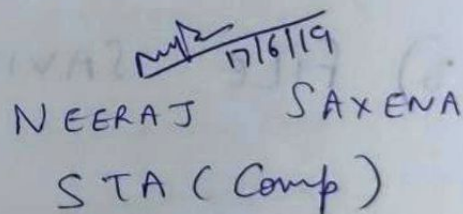 17/6/19
NEERAJ SAXENA
STA (Comp)